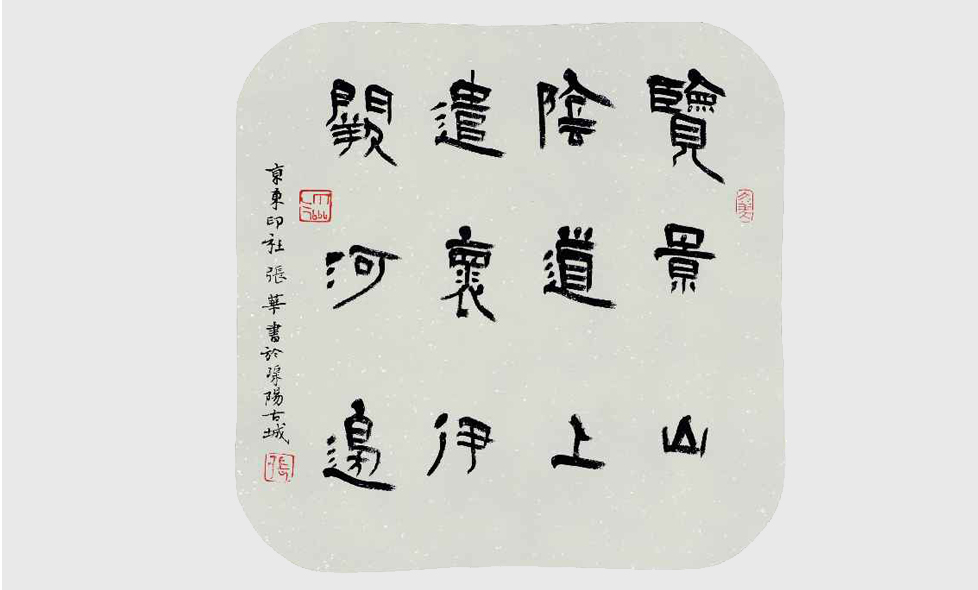 覽景山
陰道上
遣懷伊
闕河邊
京東印社 張華書於溧陽古城
張